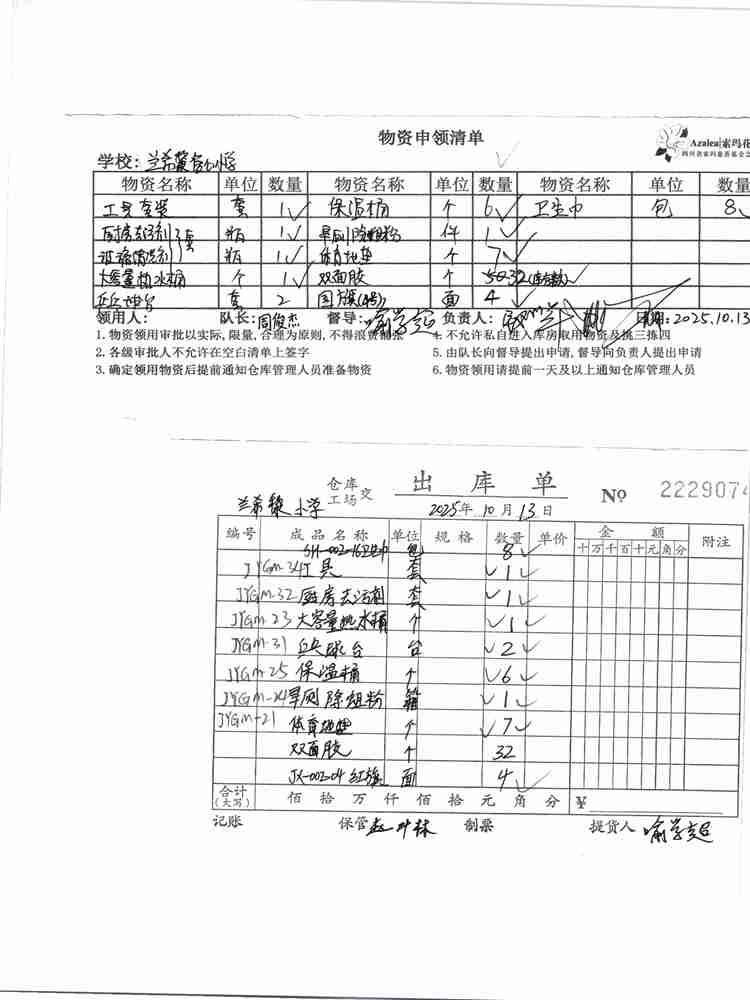 物资申领清单
Azalea|索玛花
四川省索玛慈善基金会
学校: 兰希黎 小学
物资名称 单位 数量 物资名称 单位 数量 物资名称 单位 数量
工具套装 套 1 保温桶 个 6 卫生巾 包 8
厨房去污剂 瓶 1 旱厕除粗粉 件 1
瓶 1 体育地垫 个 7
大容量热水桶 个 1 双面胶 个 50 32
乒乓球台 套 2 国旗(4号) 面 4
领用人: 队长: 周俊杰 督导: 喻学超 负责人: 日期: 2025.10.13
1.物资领用审批以实际,限量,合理为原则,不得浪费 4.不允许私自进入库房取用物资及挑三拣四
2.各级审批人不允许在空白清单上签字 5.由队长向督导提出申请,督导向负责人提出申请
3.确定领用物资后提前通知仓库管理人员准备物资 6.物资领用请提前一天及以上通知仓库管理人员
仓库 工场 交 出库单 № 2229074
兰希黎小学 2025年10月13日
编号 成品名称 单位 规格 数量 单价 金额 附注
十万千百十元角分
SH-002-16卫生巾 包 8
JYGM-34 工具 套 1
JYGM-32 厨房去污剂 套 1
JYGM-23 大容量热水桶 个 1
JYGM-31 乒乓球台 台 2
JYGM-25 保温桶 个 6
JYGM-24 旱厕除粗粉 箱 1
JYGM-21 体育地垫 个 7
双面胶 个 32
JX-002-04 红旗 面 4
合计(大写) 佰 拾 万 仟 佰 拾 元 角 分 ¥
记账 保管 制票 提货人 喻学超